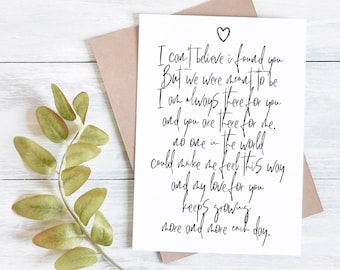 I can't believe i found you
But we were meant to be
I am always there for you
and you are there for me.
no one in the world
could make me feel this way
and my love for you
keeps growing
more and more each day.